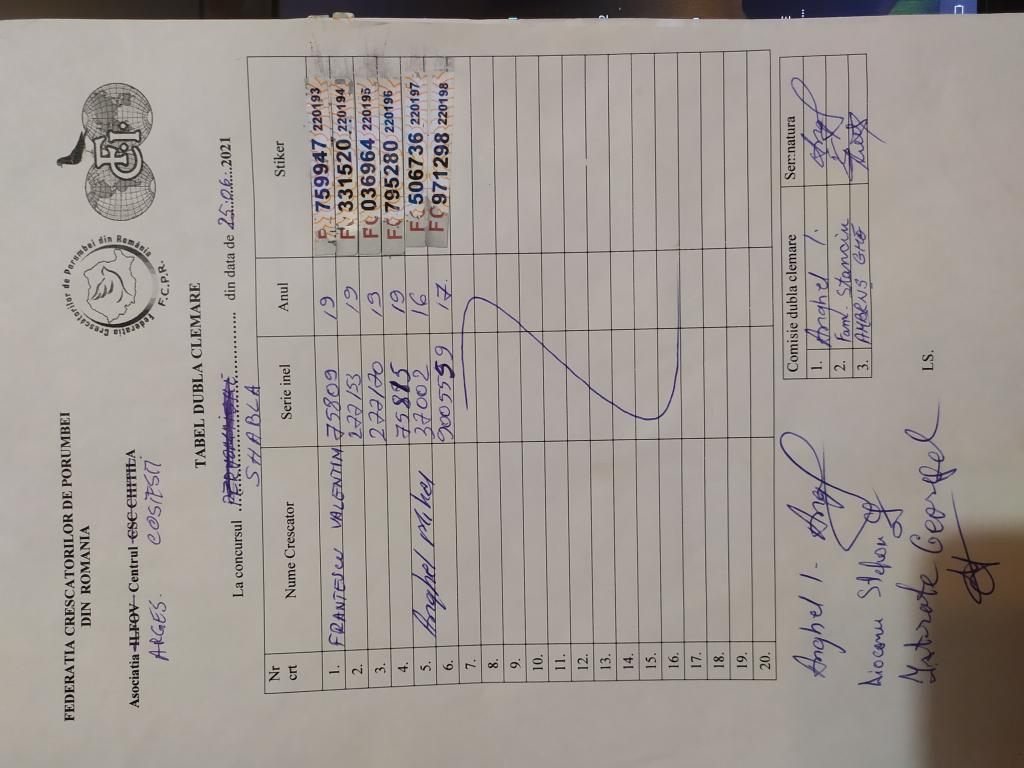 FEDERATIA CRESCATORILOR DE PORUMBEI
DIN ROMANIA
Federatia Crescatorilor de Porumbei din România
F.C.P.R.
FCI
Asociatia ILFOV Centrul CSC CHITILA
ARGES. COSTESTI
TABEL DUBLA CLEMARE
La concursul ........................ din data de 25.06.2021
SHABLA
Nr crt Nume Crescator Serie inel Anul Stiker
1. FRANTESCU VALENTIN 75809 19 759947 220193
2. 277153 19 331520 220194
3. 277170 19 036964 220195
4. 75815 19 795280 220196
5. Anghel Mihai 27002 16 506736 220197
6. 9005559 17. 971298 220198
7.
8.
9.
10.
11.
12.
13.
14.
15.
16.
17.
18.
19.
20.
Comisie dubla clemare Semnatura
1. Anghel I.
2. Fam. Stanciu
3.
Anghel I.
Stefan
George
LS.